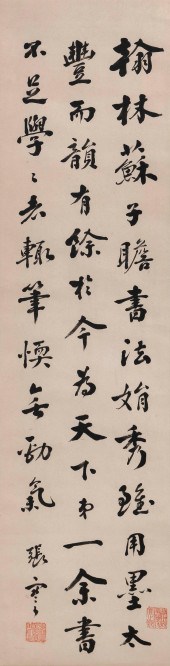 翰林蘇子瞻書法娟秀雖用墨太
豐而韻有餘於今為天下弟一余書
不足學學者輒筆愞無勁氣
張謇